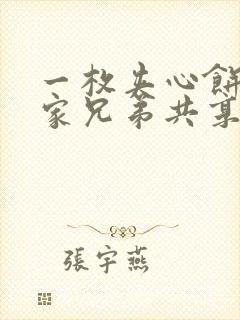 一枚夹心餅
家兄弟共某
張宇燕